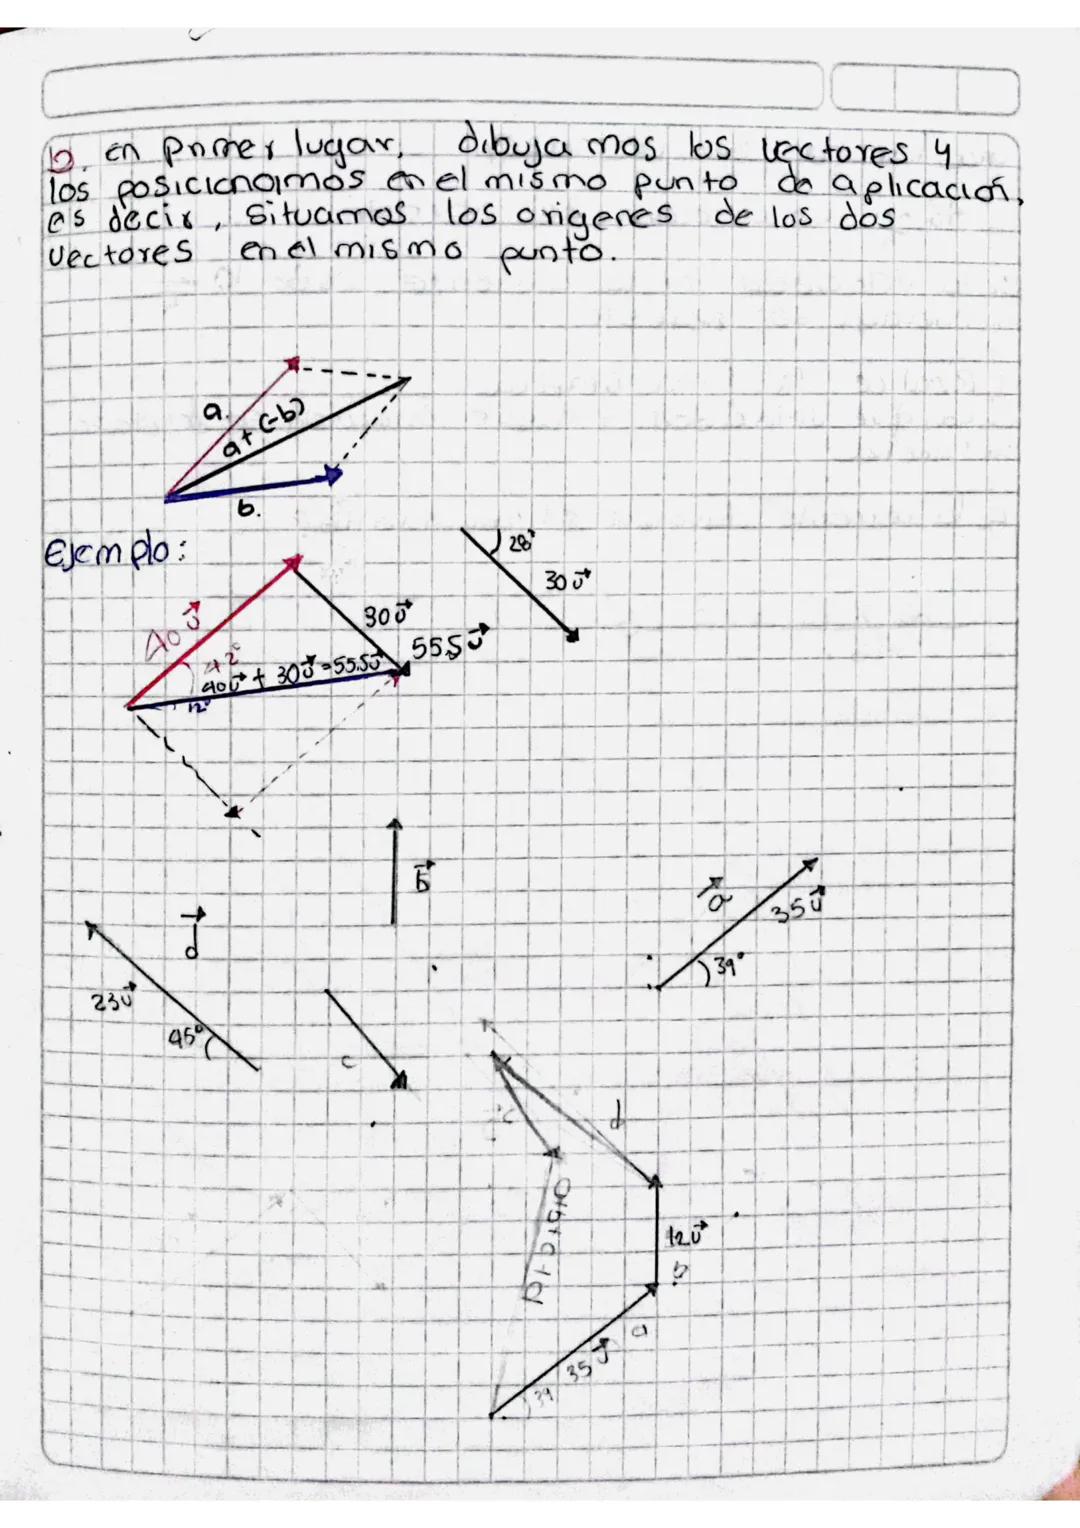 b. en primer lugar, dibuja mos los vectores y
los posicionamos en el mismo punto de aplicación,
es decir, situamos los origenes de los dos
vectores en el mismo punto.
a.
a+(-b)
b.
Ejemplo:
28°
30 v⃗
40 v⃗
30 v⃗
55.5 v⃗
42°
40v⃗ + 30v⃗=55.5v⃗
12°
b⃗
a⃗
35v⃗
39°
d⃗
23v⃗
45°
c
c
d
12v⃗
b
a
35v⃗
39